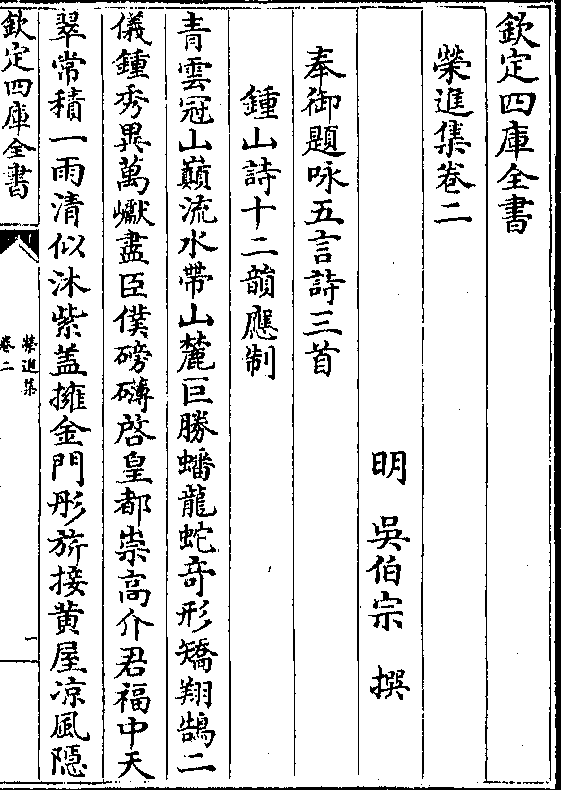 欽定四庫全書
榮進集卷二
明 吳伯宗 撰
奉御題咏五言詩三首
鍾山詩十二韻應制
青雲冠山巔流水帶山麓巨勝蟠龍蛇竒形矯翔鵠二
儀鍾秀異萬巘盡臣僕磅礴啓皇都崇高介君福中天
翠常積一雨清似沐紫盖擁金門彤旂接黄屋凉風隠
欽定四庫全書
榮進集
卷二
一